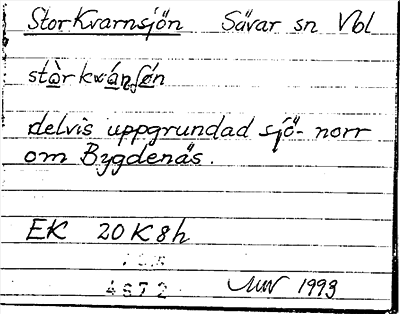 StorKvarnsjön Sävar sn Vbl
stòrkwánʃön
delvis uppgrundad sjö- norr
om Bygdenäs.
EK 20 K 8 h
4672 1993